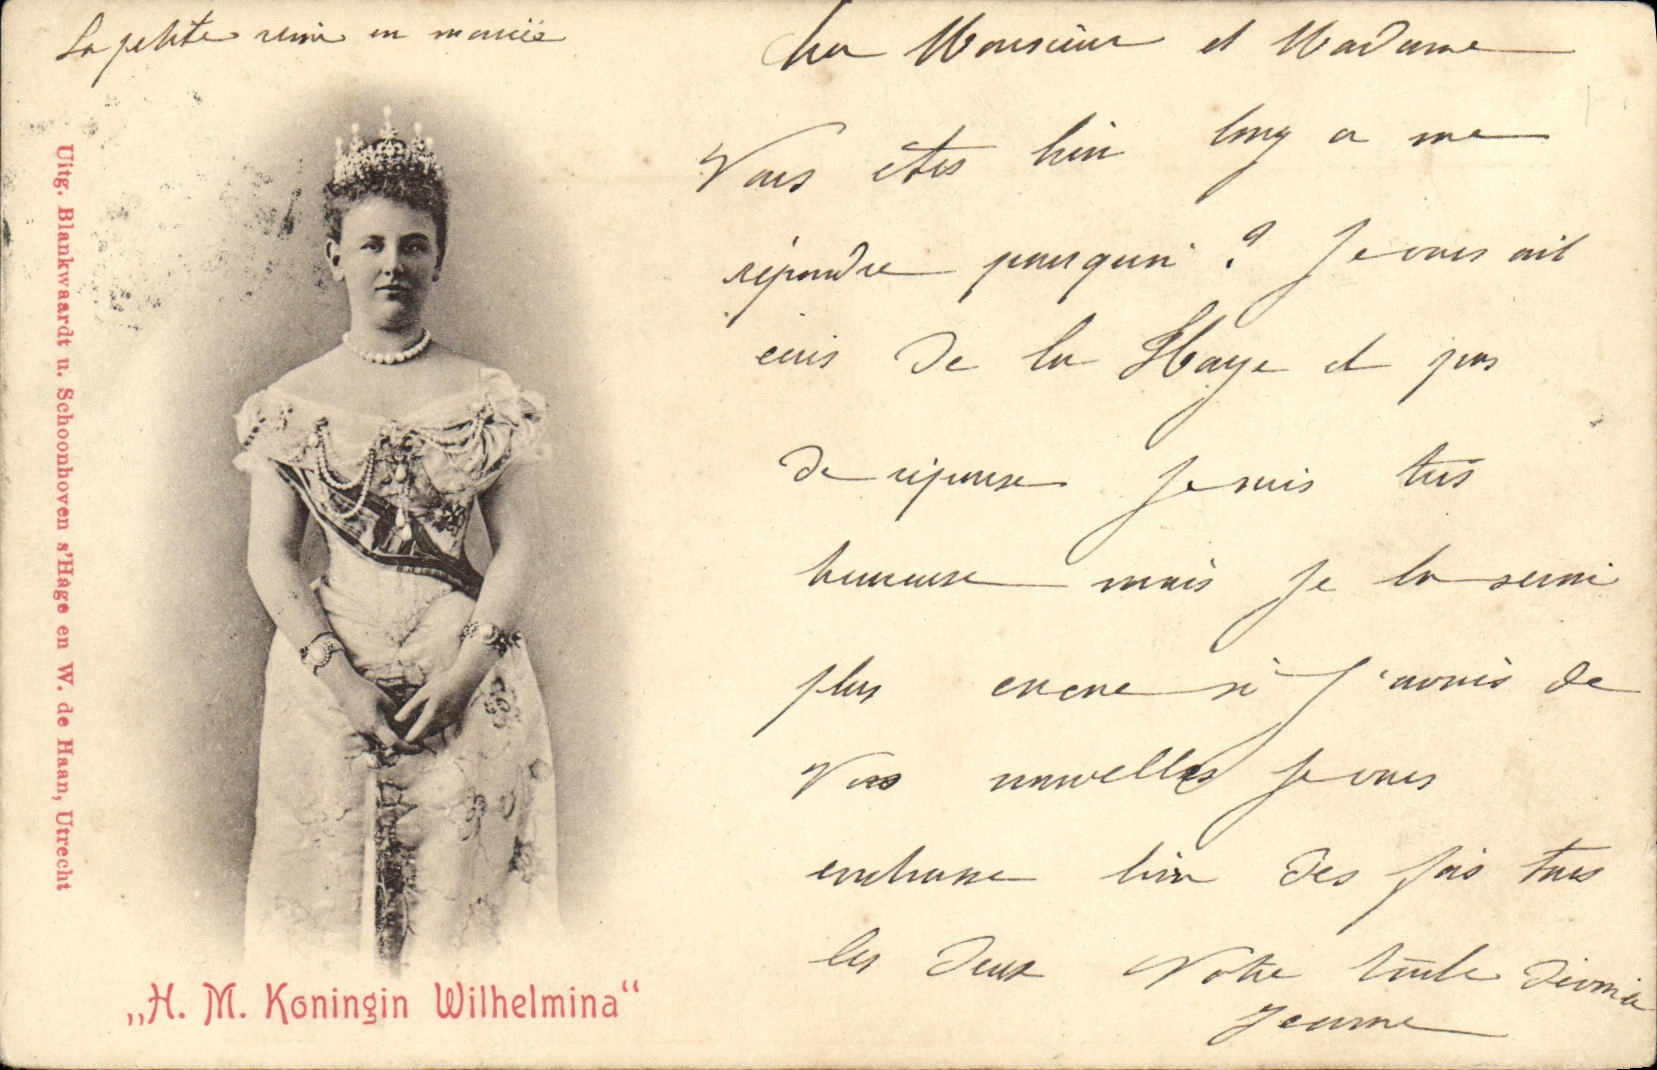 La petite reine en mariée
Uitg. Blankwaardt u. Schoonhoven s'Hage en W. de Haan, Utrecht
„H. M. Koningin Wilhelmina“
Cher Monsieur et Madame
Vous êtes bien long a me
répondre pourquoi ? Je vous ait
écris de la Haye et pas
de réponse Je suis très
heureuse mais je la serai
plus encore si j'avais de
Vos nouvelles Je vous
embrasse bien des fois tous
les deux Votre toute
Jeanne